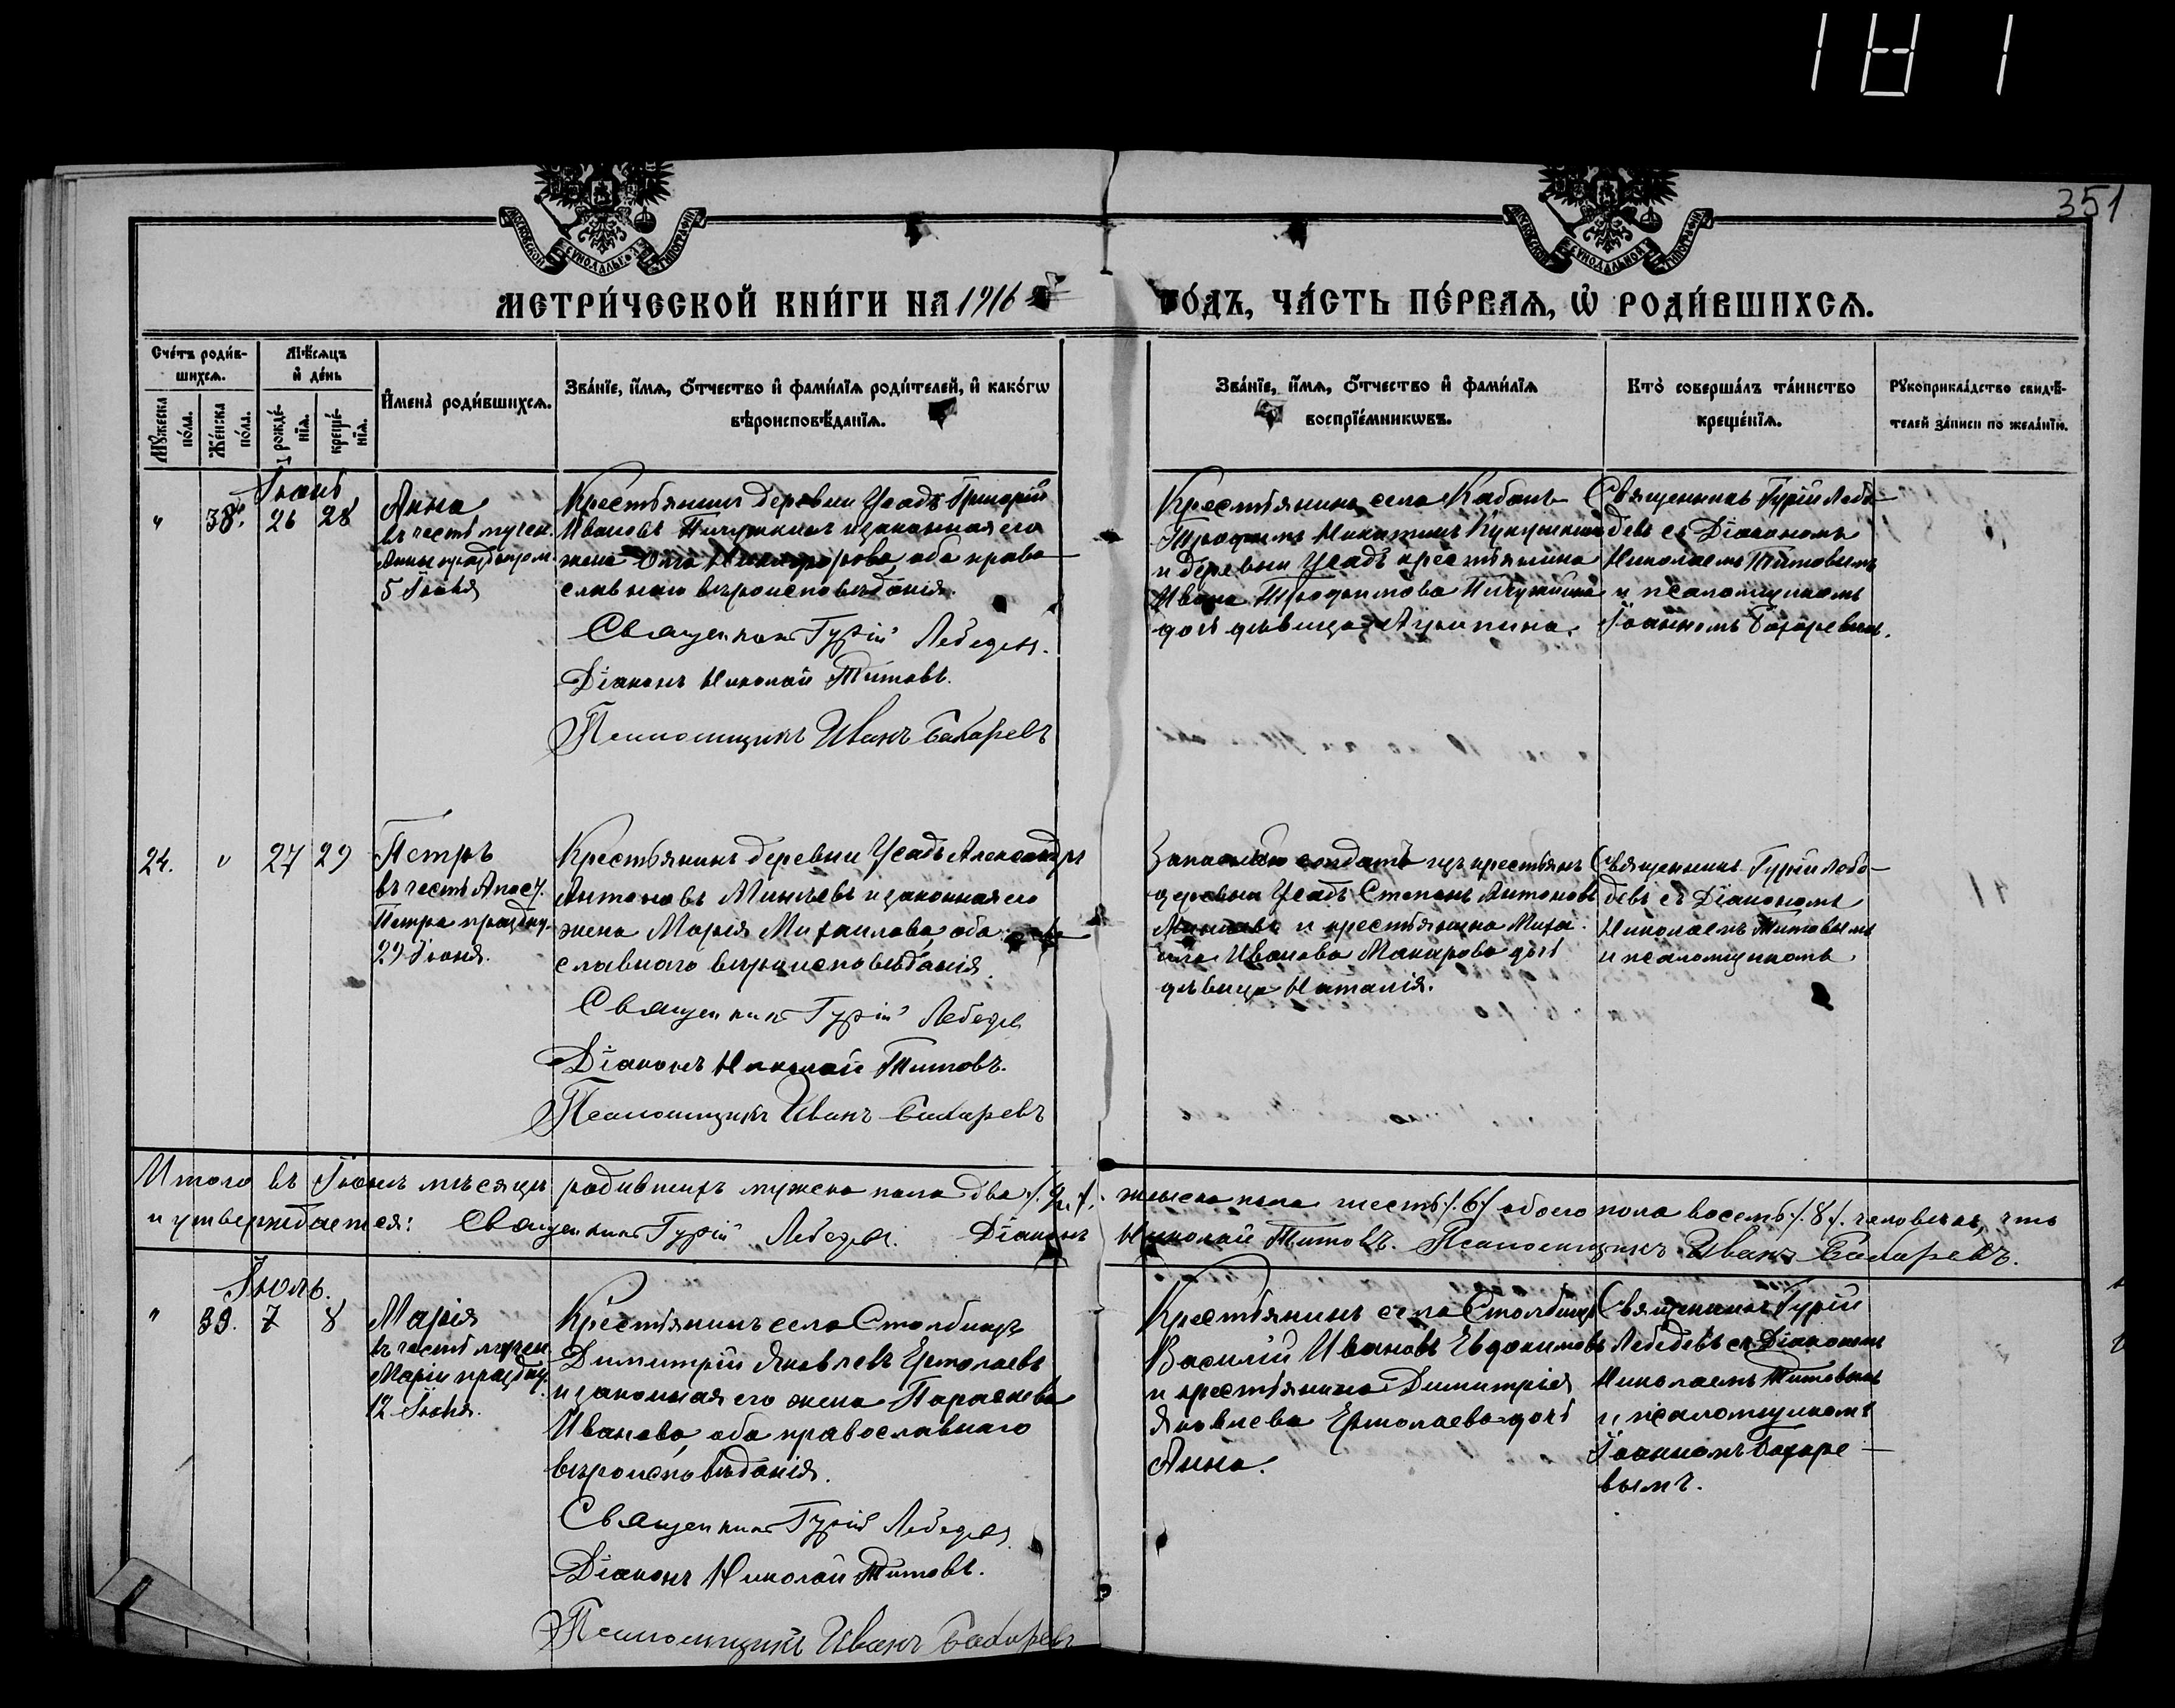 181
351
МОСКОВСКОЙ СѴНОДАЛЬНОЙ ТИПОГРАФІИ
МОСКОВСКОЙ СѴНОДАЛЬНОЙ ТИПОГРАФІИ
МЕТРИ́ЧЕСКОЙ КНИ́ГИ НА 1916 ГО́ДЪ, ЧА́СТЬ ПЕ́РВАѦ, Ѡ҆ РОДИ́ВШИХСѦ.
Сче́тъ роди́в-
шихсѧ.
Мѹжеска по́ла.
Же́нска по́ла.
Мѣ́сѧцъ
и҆ де́нь
рожде́-
нїѧ.
креще́-
нїѧ.
И҆мена̀ роди́вшихсѧ.
Зва́нїе, и҆́мѧ, ѻ҆́тчество и҆ фами́лїѧ роди́телей, и҆ како́гѡ
вѣроисповѣ́данїѧ.
Зва́нїе, и҆́мѧ, ѻ҆́тчество и҆ фами́лїѧ
воспрїе́мникѡвъ.
Кто̀ соверша́лъ та́инство
креще́нїѧ.
Рѹкоприкла́дство свидѣ́-
телей за́писи по жела́нїю.
Іюнь
" 38. 26 28
Анна
въ честь мучен.
Анны празднуем.
5 Іюня
Крестьянинъ деревни Усадъ Григорій
Ивановъ Пичужкинъ и законная его
жена Никифорова, оба право
славнаго вѣроисповѣданія.
Священникъ Гурій Лебедевъ.
Діаконъ Николай Титовъ.
Псаломщикъ Иванъ Бахаревъ
Крестьянинъ села Кабанъ
Трофимъ Никитинъ
и деревни Усадъ крестьянина
Ивана Трофимова Пичужкина
дочь дѣвица Акилина.
Священникъ Гурій Лебе-
девъ съ Діакономъ
Николаемъ Титовымъ
и псаломщикомъ
Іоанномъ Бахаревым.
24. " 27 29
Петръ
въ честь Апост.
Петра праздну.
29 Іюня.
Крестьянинъ деревни Усадъ Александръ
Антоновъ Минѣевъ и законная его
жена Марія Михаилова, оба право
славнаго вѣроисповѣданія.
Священникъ Гурій Лебедев
Діаконъ Николай Титовъ.
Псаломщикъ Иванъ Бахаревъ
Запасный солдатъ изъ крестьянъ
деревни Усадъ Степанъ Антоновъ
Минѣевъ и крестьянина Миха-
ила Иванова Макарова дочь
дѣвица Наталія.
Священникъ Гурій Лебе-
девъ съ Діакономъ
Николаемъ Титовымъ
и псаломщикомъ.
Итого въ Іюнѣ мѣсяцѣ родившихъ мужска пола два /.2./. женска пола шесть /.6/ обоего пола восемь /.8/. человѣкъ, что
и утверждается: Священникъ Гурій Лебедевъ. Діаконъ Николай Титовъ. Псаломщикъ Иванъ Бахаревъ.
Іюль.
" 39. 7 8
Марія
въ честь мучен.
Маріи праздну.
12 Іюня.
Крестьянинъ села Столбищъ
Димитрій Яковлевъ Ермолаевъ
и законная его жена Параскева
Иванова, оба православнаго
вѣроисповѣданія.
Священникъ Гурій Лебедевъ
Діаконъ Николай Титовъ.
Псаломщикъ Иванъ Бахаревъ
Крестьянинъ села Столбищъ
Василій Ивановъ Евдокимовъ
и крестьянина Димитрія
Яковлева Ермолаева дочь
Анна.
Священникъ Гурій
Лебедевъ съ Діакономъ
Николаемъ Титовымъ
и псаломщикомъ
Іоанномъ Бахаре-
вымъ.